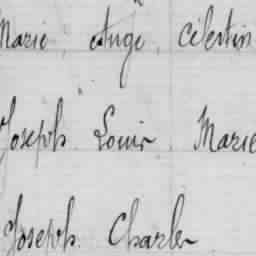 Marie Ange Célestin
Joseph Louis Marie
Joseph Charles